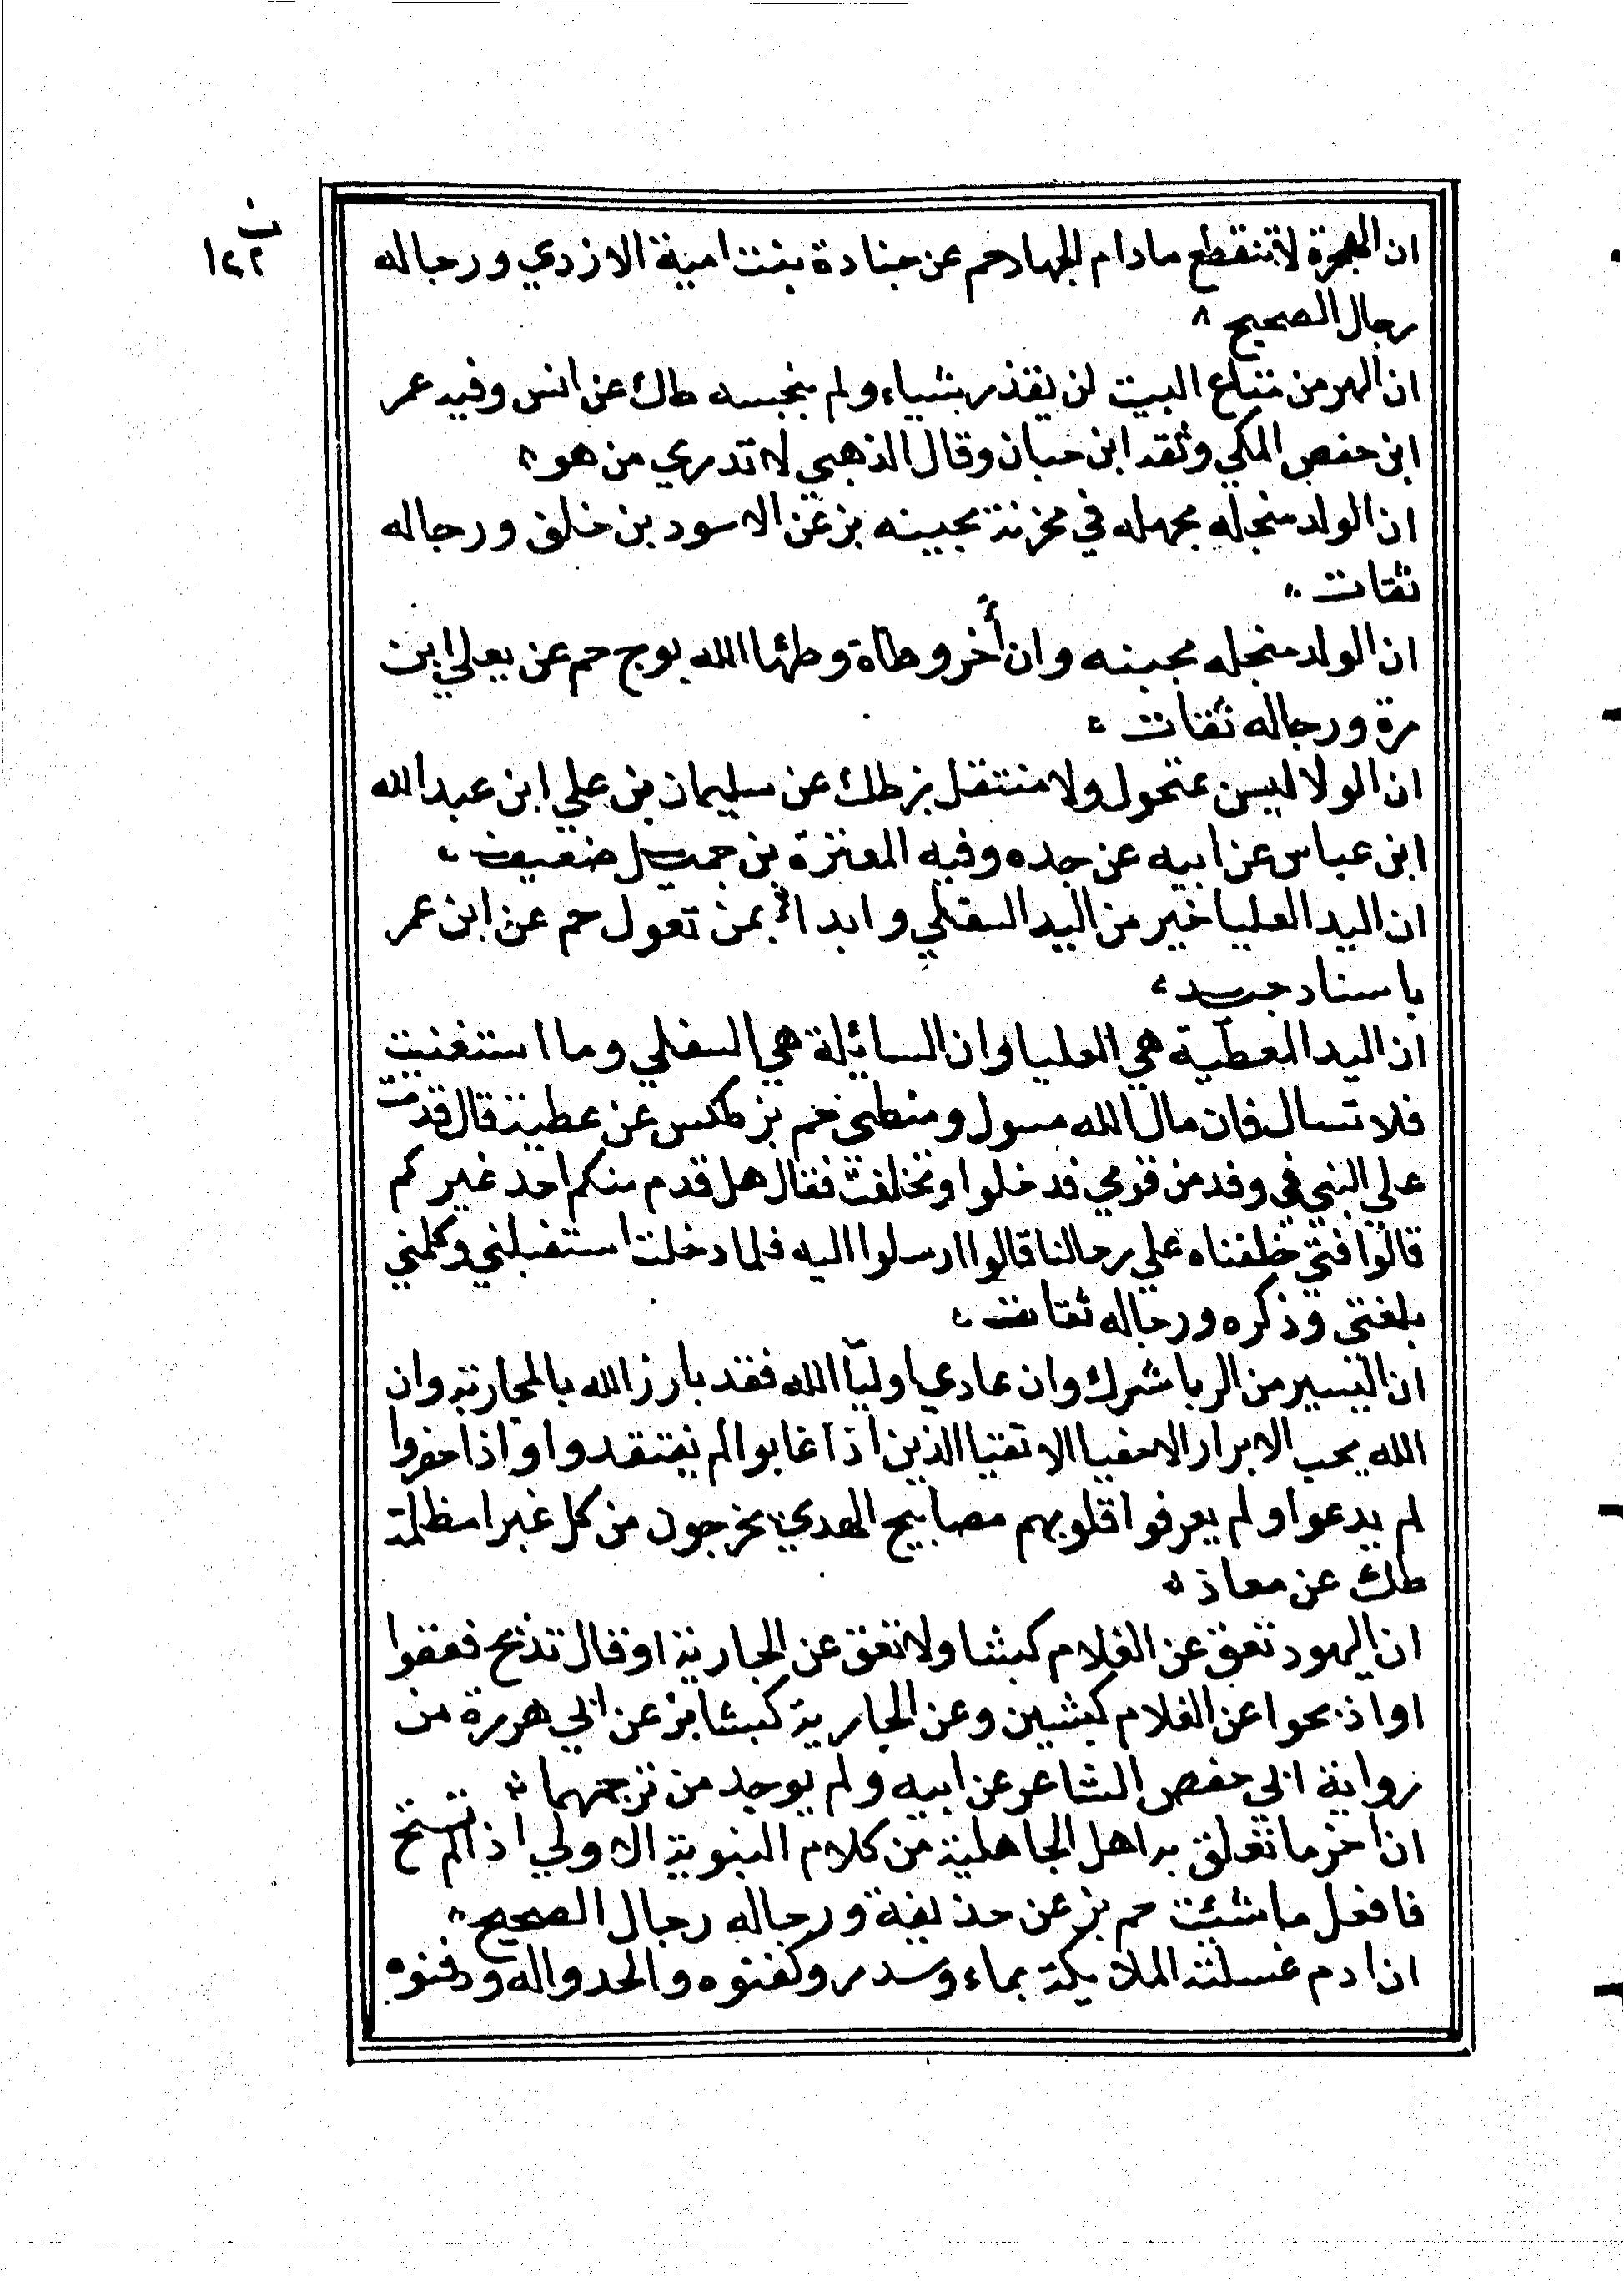 ان الهجرة لا تنقطع مادام الجهاد حم عن جنادة بنت امية الازدي ورجاله
رجال الصحيح
ان الهر من متاع البيت لن يقذر بشياء ولم ينجسه طك عن انس وفيه عمر
ابن حفص المكي وثقه ابن حبان وقال الذهبي لا تدري من هو
ان الولد منجله مجهله في محزنة مجبنه بز عن الاسود بن خلف ورجاله
ثقات
ان الولد منجله مجبنه وان أخر وطاة وطئها الله بوج حم عن يعلي ابن
مرة ورجاله ثقات
ان الولا ليس بمتحول ولا منتقل بز طك عن سليمان بن علي ابن عبد الله
ابن عباس عن ابيه عن جده وفيه المغنرة بن جميل ضعيف
ان اليد العليا خير من اليد السفلي وابدا بمن تعول حم عن ابن عمر
باسناد جيد
ان اليد المعطية هي العليا وان السائلة هي السفلي وما استغنيت
فلا تسال فان مال الله مسول ومنطي حم بز طكس عن عطية قال قدمت
علي النبي في وفد من قومي فدخلوا وتخلفت فقال هل قدم منكم احد غيركم
قالوا فتي خلفناه علي رحالنا قالوا ارسلوا اليه فلما دخلت استقبلني وكلمني
بلغتي وذكره ورجاله ثقات
ان اليسير من الريا شرك وان عادي اوليآ الله فقد بارز الله بالمحاربة وان
الله يحب الابرار الاخفيا الاتقيا الذين اذا غابوا لم يفتقدوا واذا حضروا
لم يدعوا ولم يعرفوا قلوبهم مصابيح الهدي يخرجون من كل غبرا مظلمة
طك عن معاذ
ان اليهود تعق عن الغلام كبشا ولا تعق عن الجارية او قال تذبح فعقوا
او اذبحوا عن الغلام كبشين وعن الجارية كبشا بز عن ابي هريرة من
رواية ابي حفص الشاعر عن ابيه ولم يوجد من ترجمهما
ان اخر ما تعلق به اهل الجاهلية من كلام النبوية الاولي اذا لم تستح
فافعل ما شئت حم بز عن حذيفة ورجاله رجال الصحيح
ان ادم غسلته الملايكة بماء وسدر وكفنوه والحدوا له ودفنوه